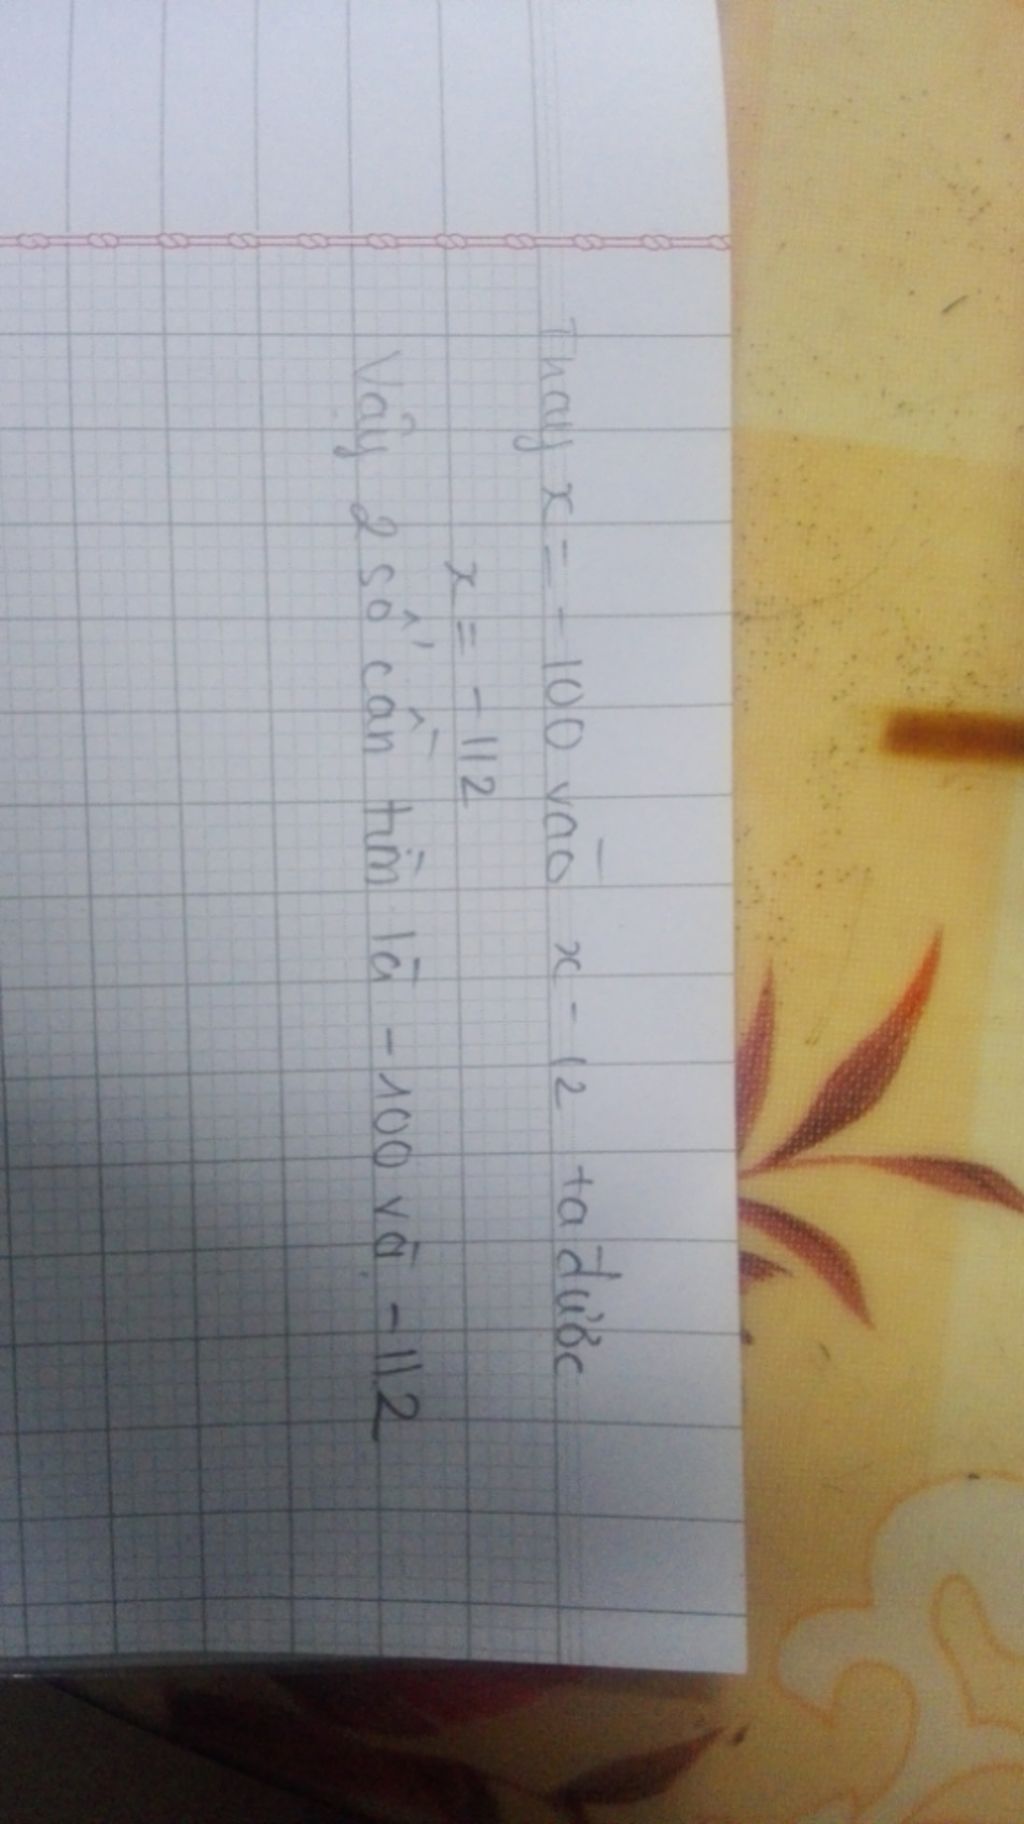 Thay x = -100 vào x - 12 ta được
x = -112
Vậy 2 số cần tìm là -100 và -112